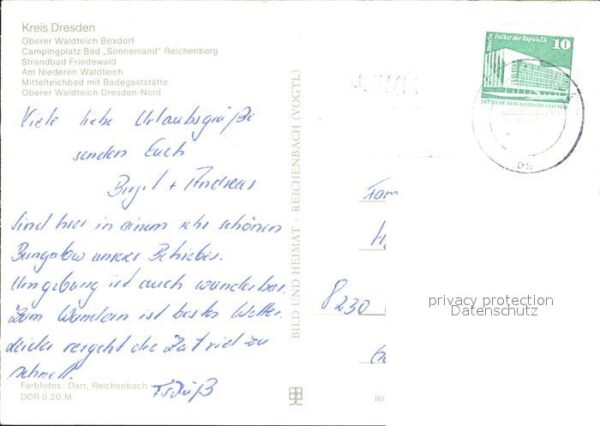 Kreis Dresden
Oberer Waldteich Boxdorf
Campingplatz Bad „Sonnenland" Reichenberg
Strandbad Friedewald
Am Niederen Waldteich
Mittelteichbad mit Badegaststätte
Oberer Waldteich Dresden-Nord
Viele liebe Urlaubsgrüße
senden Euch
Birgit + Andreas
Sind hier in einem sehr schönen
Bungalow unseres Betriebes.
Umgebung ist auch wunderbar.
Zum Wandern ist bestes Wetter
leider vergeht die Zeit viel zu
schnell.
Tschüß
Farbfotos: Darr, Reichenbach
DDR 0,20 M
BILD UND HEIMAT · REICHENBACH (VOGTL)
Berlin, Palast der Republik
10
DEUTSCHE DEMOKRATISCHE REPUBLIK
Fam
8230
privacy protection
Datenschutz
III/